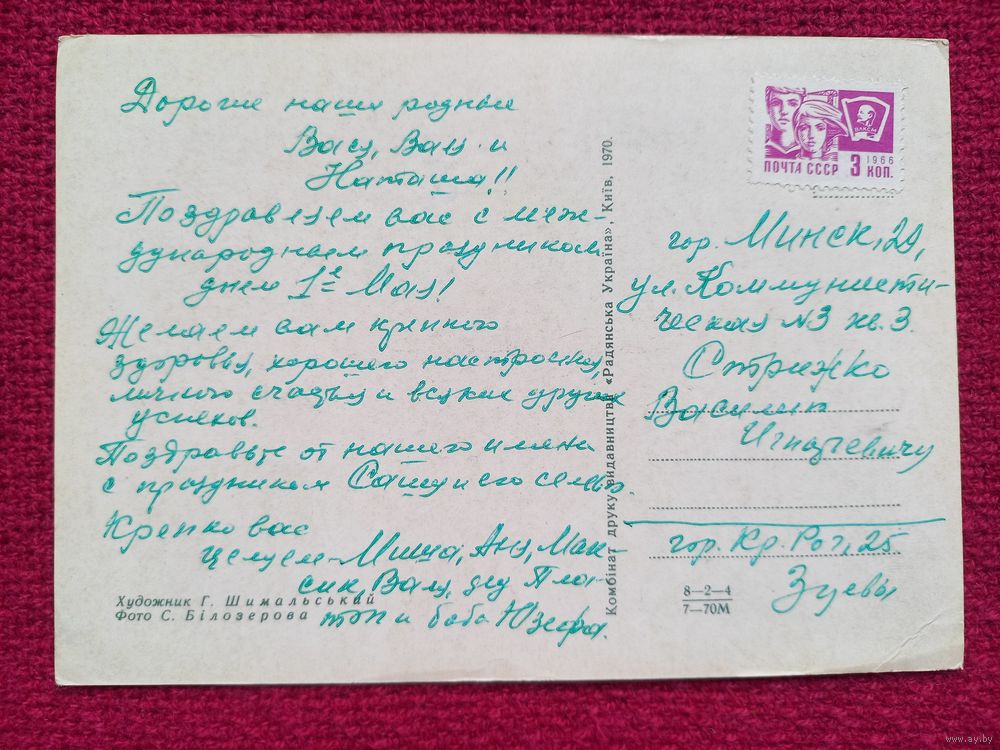 Дорогие наши родные
Вася, Валя и
Наташа!!
Поздравляем вас с меж-
дународным праздником
днем 1е Мая!
Желаем вам крепкого
здоровья, хорошего настроения,
личного счастья и всяких других
успехов.
Поздравьте от нашего имени
с праздником Сашу и его семью.
Крепко вас
целуем - Миша, Аня, Мак-
сик, Валя, дед Пла-
тон и баба Юзефа.
Художник Г. Шимальський
Фото С. Білозерова
Комбінат друку видавництва «Радянська Україна», Київ, 1970.
ВЛКСМ
1966
ПОЧТА СССР 3 КОП.
гор. Минск, 29,
ул. Коммунисти-
ческая №3 кв. 3.
Стрижко
Василию
Игнатьевичу
гор. Кр. Рог, 25
Зуевы
8—2—4
7—70М
www.ay.by